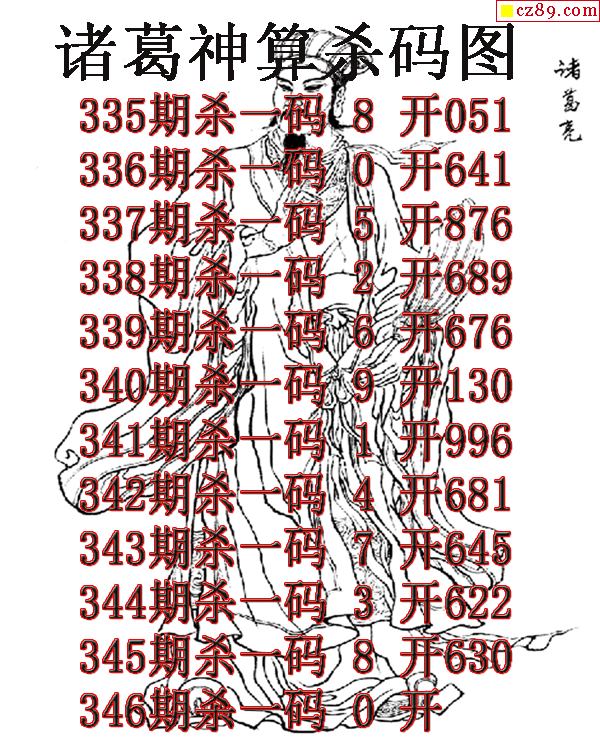 cz89.com
诸葛神算杀码图
诸葛亮
335期杀一码 8 开051
336期杀一码 0 开641
337期杀一码 5 开876
338期杀一码 2 开689
339期杀一码 6 开676
340期杀一码 9 开130
341期杀一码 1 开996
342期杀一码 4 开681
343期杀一码 7 开645
344期杀一码 3 开622
345期杀一码 8 开630
346期杀一码 0 开